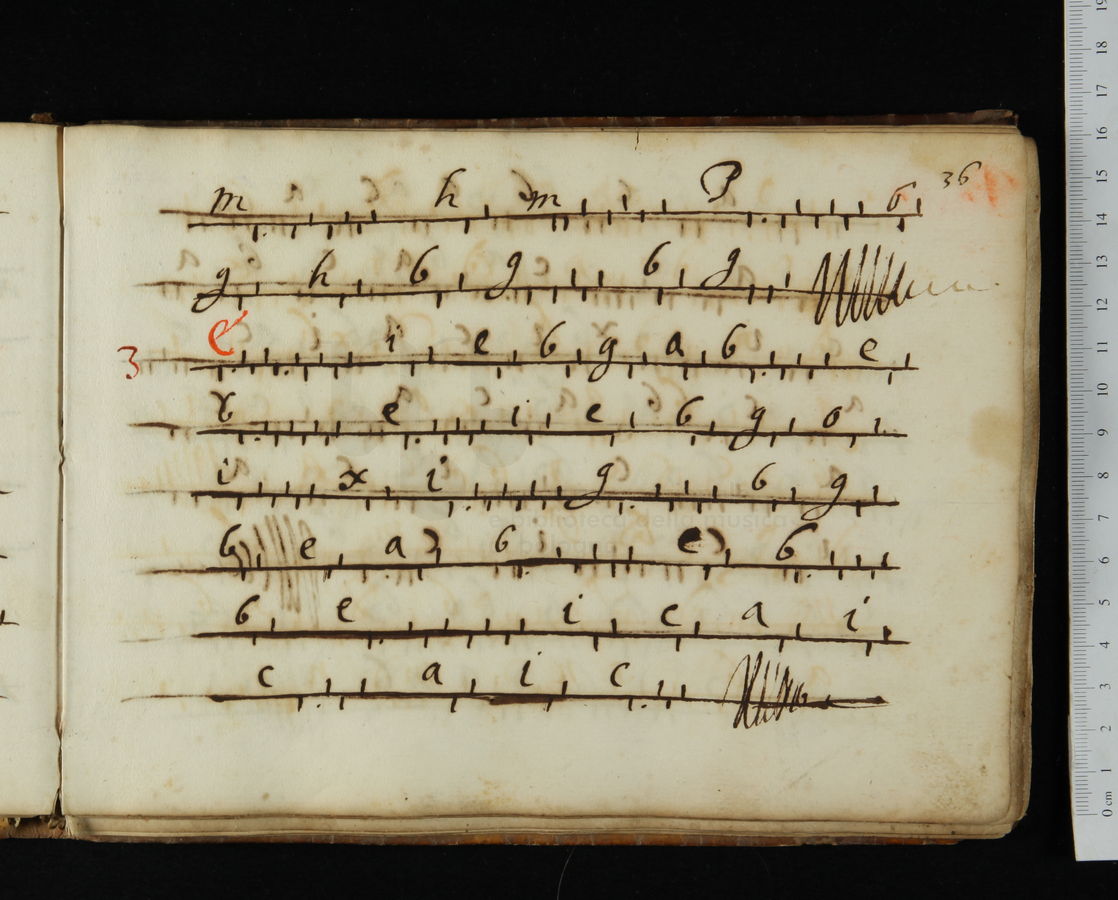 36
m h m P 6
g h 6 g 6 g
3 e i e 6 g a 6 e
e i e 6 g o
i x i g 6 g
6 e a 6 e 6
6 e i c a i
c a i c